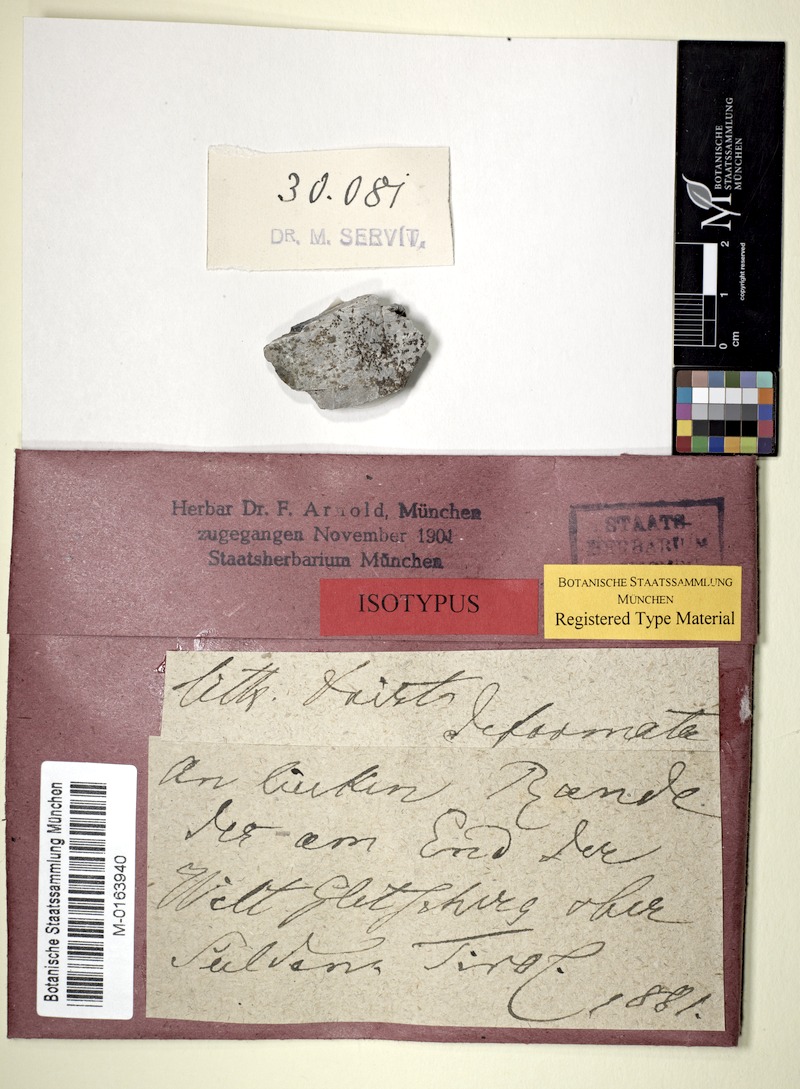 30.081
DR. M. SERVÍT.
BOTANISCHE
STAATSSAMMLUNG
MÜNCHEN
copyright reserved
0 1 2
cm
Herbar Dr. F. Arnold, München
zugegangen November 1901
Staatsherbarium München
STAATS-
HERBARIUM
ISOTYPUS
BOTANISCHE STAATSSAMMLUNG
MÜNCHEN
Registered Type Material
Lith.
deformata
An linken Rande
der am End der
Welt Gletscherg ober
Sulden. Tirol.
1881.
Botanische Staatssammlung München
M-0163940